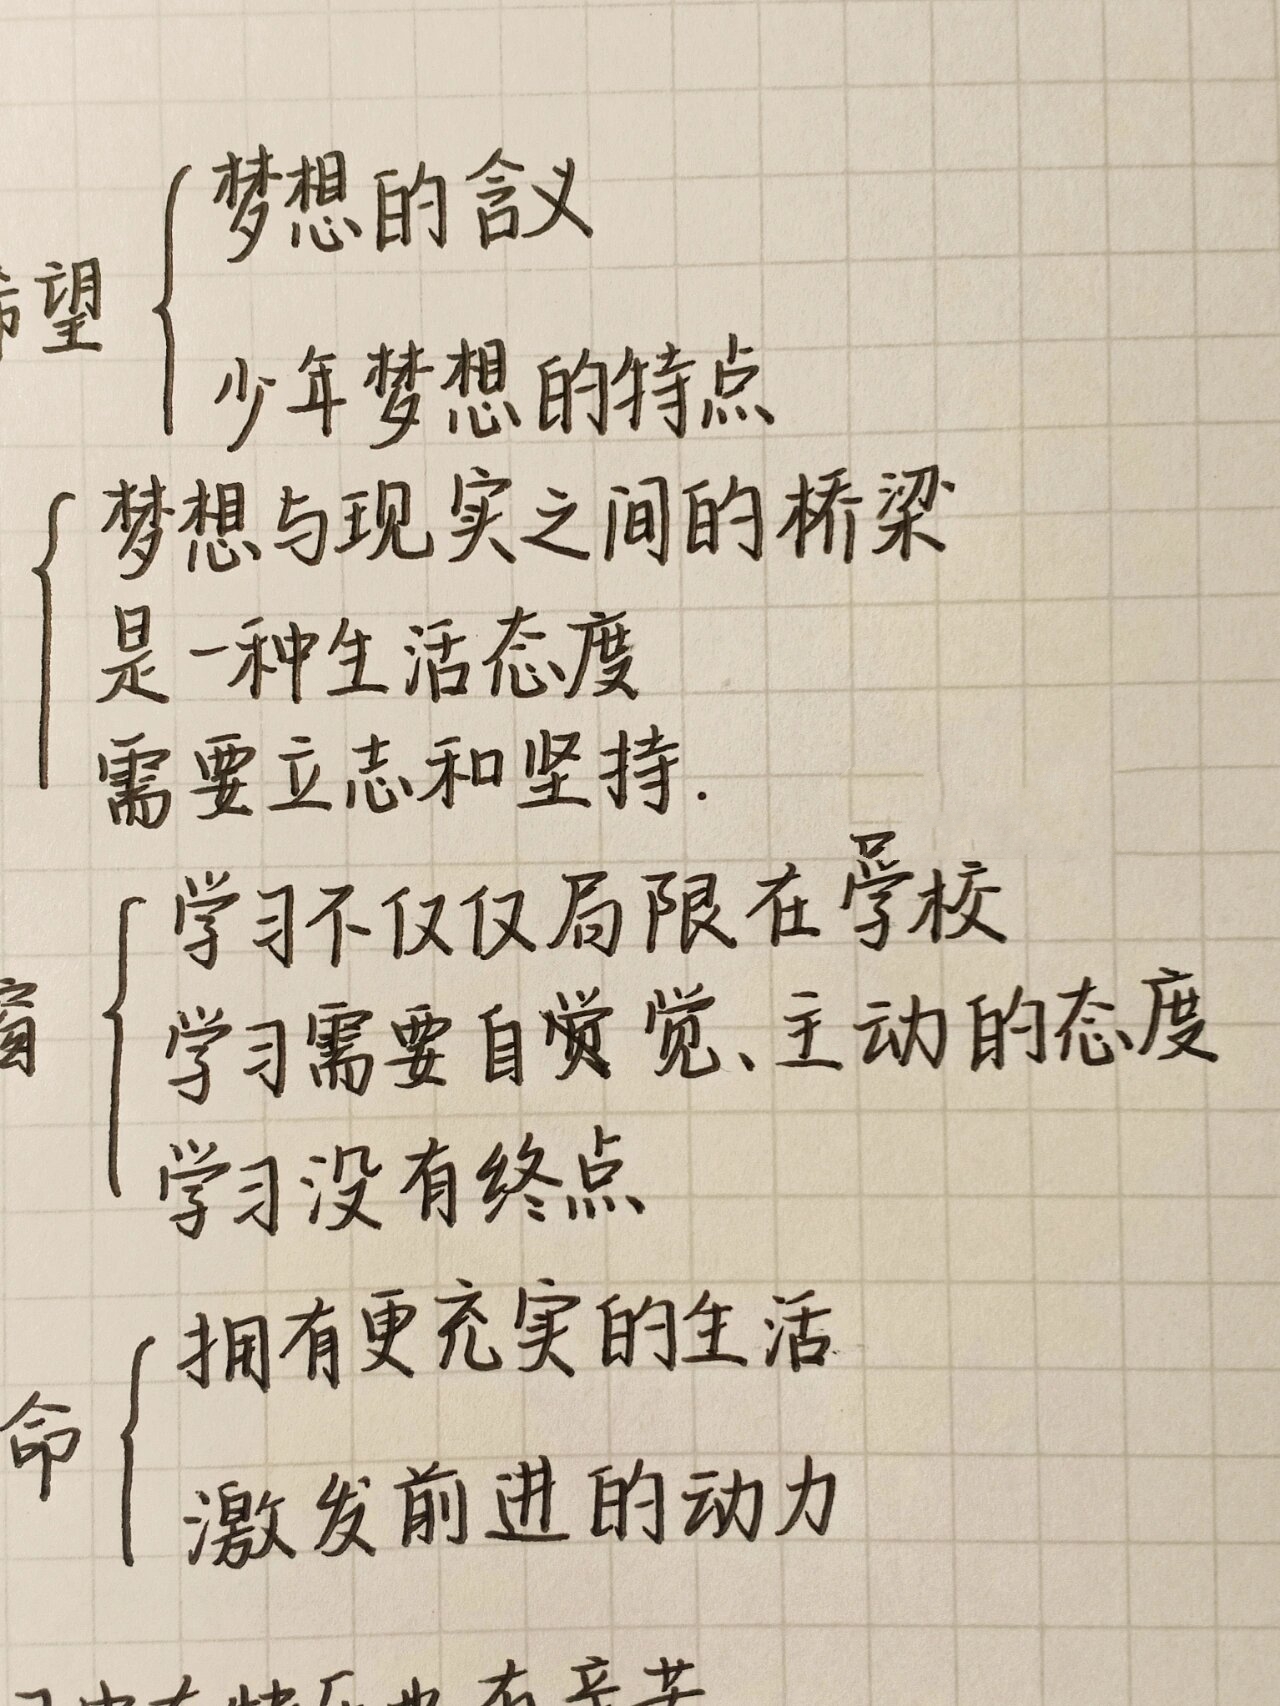 梦想的含义
希望
少年梦想的特点
梦想与现实之间的桥梁
是一种生活态度
需要立志和坚持.
学习不仅仅局限在学校
学习需要自觉、主动的态度
学习没有终点
拥有更充实的生活
命
激发前进的动力